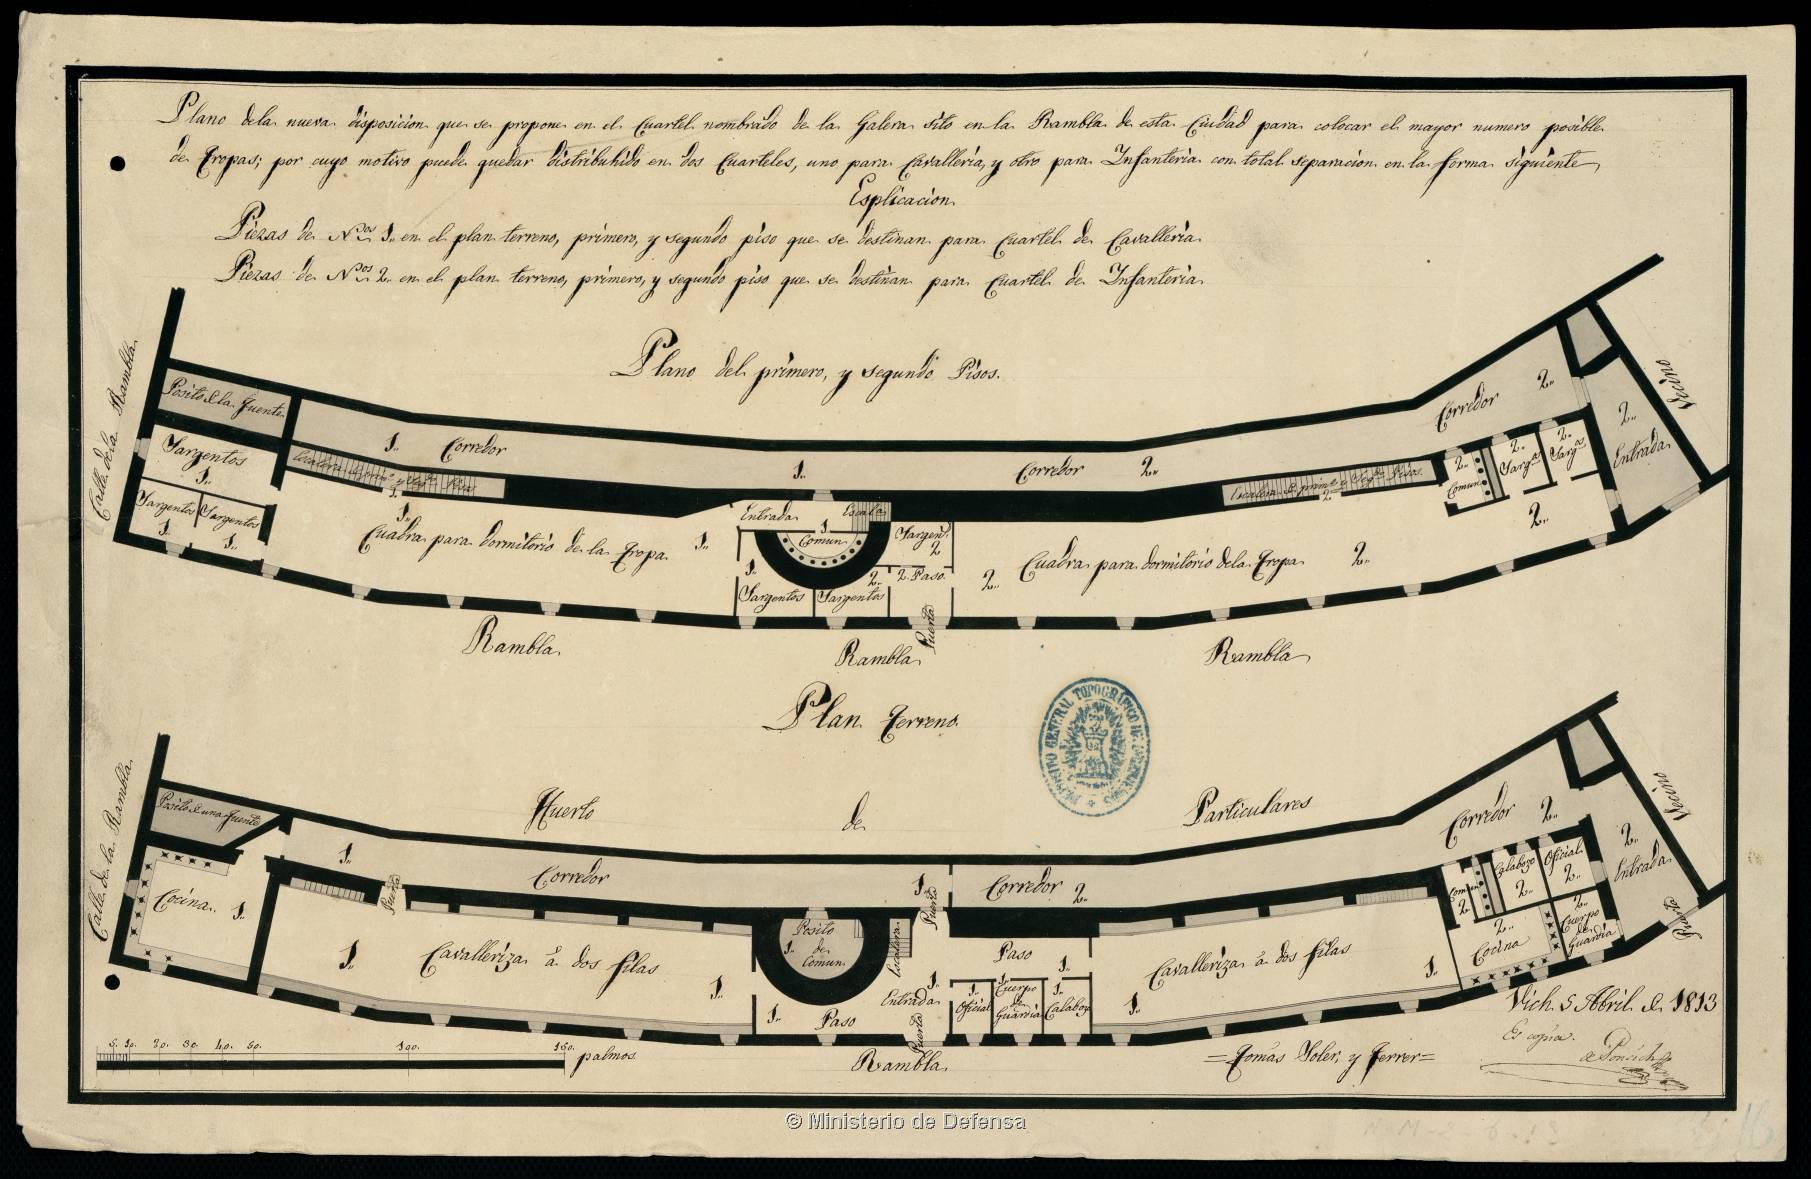 Plano dela nueva disposicion que se propone en el Cuartel nombrado de la Galera sito en la Rambla de esta Ciudad para colocar el mayor numero posible
de Tropas; por cuyo motivo puede quedar distribuhido en dos Cuarteles, uno para Cavalleria, y otro para Infanteria con total separacion en la forma siguiente
Esplicacion
Piezas de Nos. 1.. en el plan terreno, primero, y segundo piso que se destinan para Cuartel de Cavalleria
Piezas de Nos. 2.. en el plan terreno, primero, y segundo piso que se destinan para Cuartel de Infanteria
Plano del primero, y segundo Pisos.
Calle dela Rambla
Posito de la Fuente
Sargentos
1..
Sargentos
1..
Sargentos
1..
1..
Corredor
1..
Corredor
2..
Corredor
2..
Vecino
2..
Entrada
1..
Cuadra para dormitorio de la Tropa
1..
Entrada
Escala
1
Comun
1..
Sargentos
2..
Sargentos
Sargent.
2
2. Paso
Puerta
2..
Cuadra para dormitorio dela Tropa
2..
Escalera de prim.o y Seg.do Pisos
2..
2..
Comun
2..
Sarg.os
2..
Sarg.os
2..
Rambla
Rambla
Rambla
Plan Terreno
DEPOSITO GENERAL TOPOGRÁFICO DE INGENIEROS
Calle de la Rambla
Huerto
de
Particulares
Posito de una Fuente
Cocina
1..
1..
Corredor
1..
Puerta
Corredor
2..
Corredor
2..
Vecino
2..
Entrada
Puerta
Puerta
1..
Cavalleriza á dos filas
1..
Posito
1.. de
Comun
Escalera
1..
Paso
Entrada
1..
Puerta
Paso
1..
1..
Oficial
1..
Cuerpo
de
Guardia
1..
Calabozo
Cavalleriza á dos filas
1..
1..
Comun
2..
Calabozo
2..
Oficial
2..
2..
Cocina
2..
Cuerpo
de
Guardia
Rambla
5. 10. 20. 30. 40. 50. 100. 150. palmos
Vich 5 Abril de 1813
=Tomás Soler, y Ferrer=
Es copia.
© Ministerio de Defensa